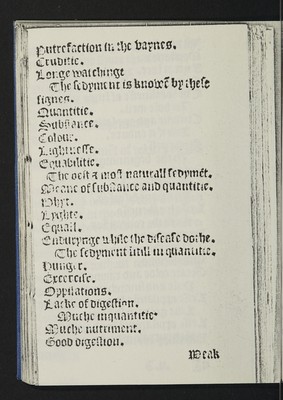 Putrefaction in the vaynes.
Cruditie.
Longe watchinge
The sedyment is knowen by these
signes.
Quantitie.
Substance.
Colour.
Lightnesse.
Equabilitie.
The best & most naturall sedymēt.
Meane of substance and quantitie.
Whyt.
Lyghte.
Equall.
Endurynge while the disease dothe.
The sedyment litill in quantitie.
Hunger.
Excercise.
Oppilations.
Lacke of digestion.
Muche inquantitie.
Muche nutriment.
Good digestion.
Weak